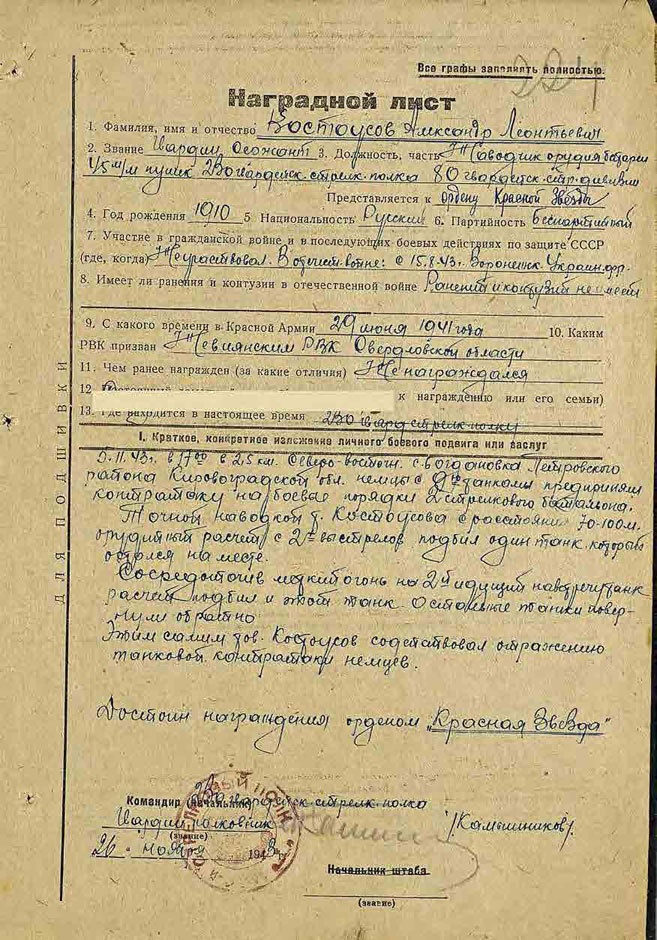 Все графы заполнять полностью.
224
Наградной лист
1. Фамилия, имя и отчество Костоусов Александр Леонтьевич
2. Звание Гвардии Сержант 3. Должность, часть Наводчик орудия батареи
45 м/м пушек 230 гвардейск. стрелк. полка 80 гвардейск. стр. дивизии
Представляется к ордену Красной Звезды
4. Год рождения 1910 5 Национальность Русский 6. Партийность беспартийный
7. Участие в гражданской войне и в последующих боевых действиях по защите СССР
(где, когда) Не участвовал. В отечеств. войне: с 15.8.43г. Воронежск. Украин. фр.
8. Имеет ли ранения и контузии в отечественной войне Ранений и контузий не имеет
9. С какого времени в Красной Армии 29 июня 1941 года 10. Каким
РВК призван Невиянским РВК Свердловской области
11. Чем ранее награжден (за какие отличия) Не награждался
12
к награждению или его семьи)
13. Где находится в настоящее время 230 гвард. стрелк. полку
I. Краткое, конкретное изложение личного боевого подвига или заслуг
5.11.43г. в 17 00 в 2,5 км. Северо-восточн. с. Богдановка Петровского
района Кировоградской обл. немцы с 9ю танками предприняли
контратаку на боевые порядки 2 стрелкового батальона.
Точной наводкой т. Костоусова с расстояния 70-100м.
орудийный расчет с 2х выстрелов подбил один танк, который
остался на месте.
Сосредоточив меткий огонь на 2й идущий навстречу танк
расчет подбил и этот танк. Остальные танки повер-
нули обратно
Этим самим тов. Костоусов содействовал отражению
танковой контратаки немцев.
Достоин награждения орденом „Красная Звезда"
Командир (начальник) 230 гвардейск. стрелк. полка
Гвардии полковник /Камышников/.
(звание)
26 " ноября 1943 г.
Начальник штаба
(звание)
ДЛЯ ПОДШИВКИ